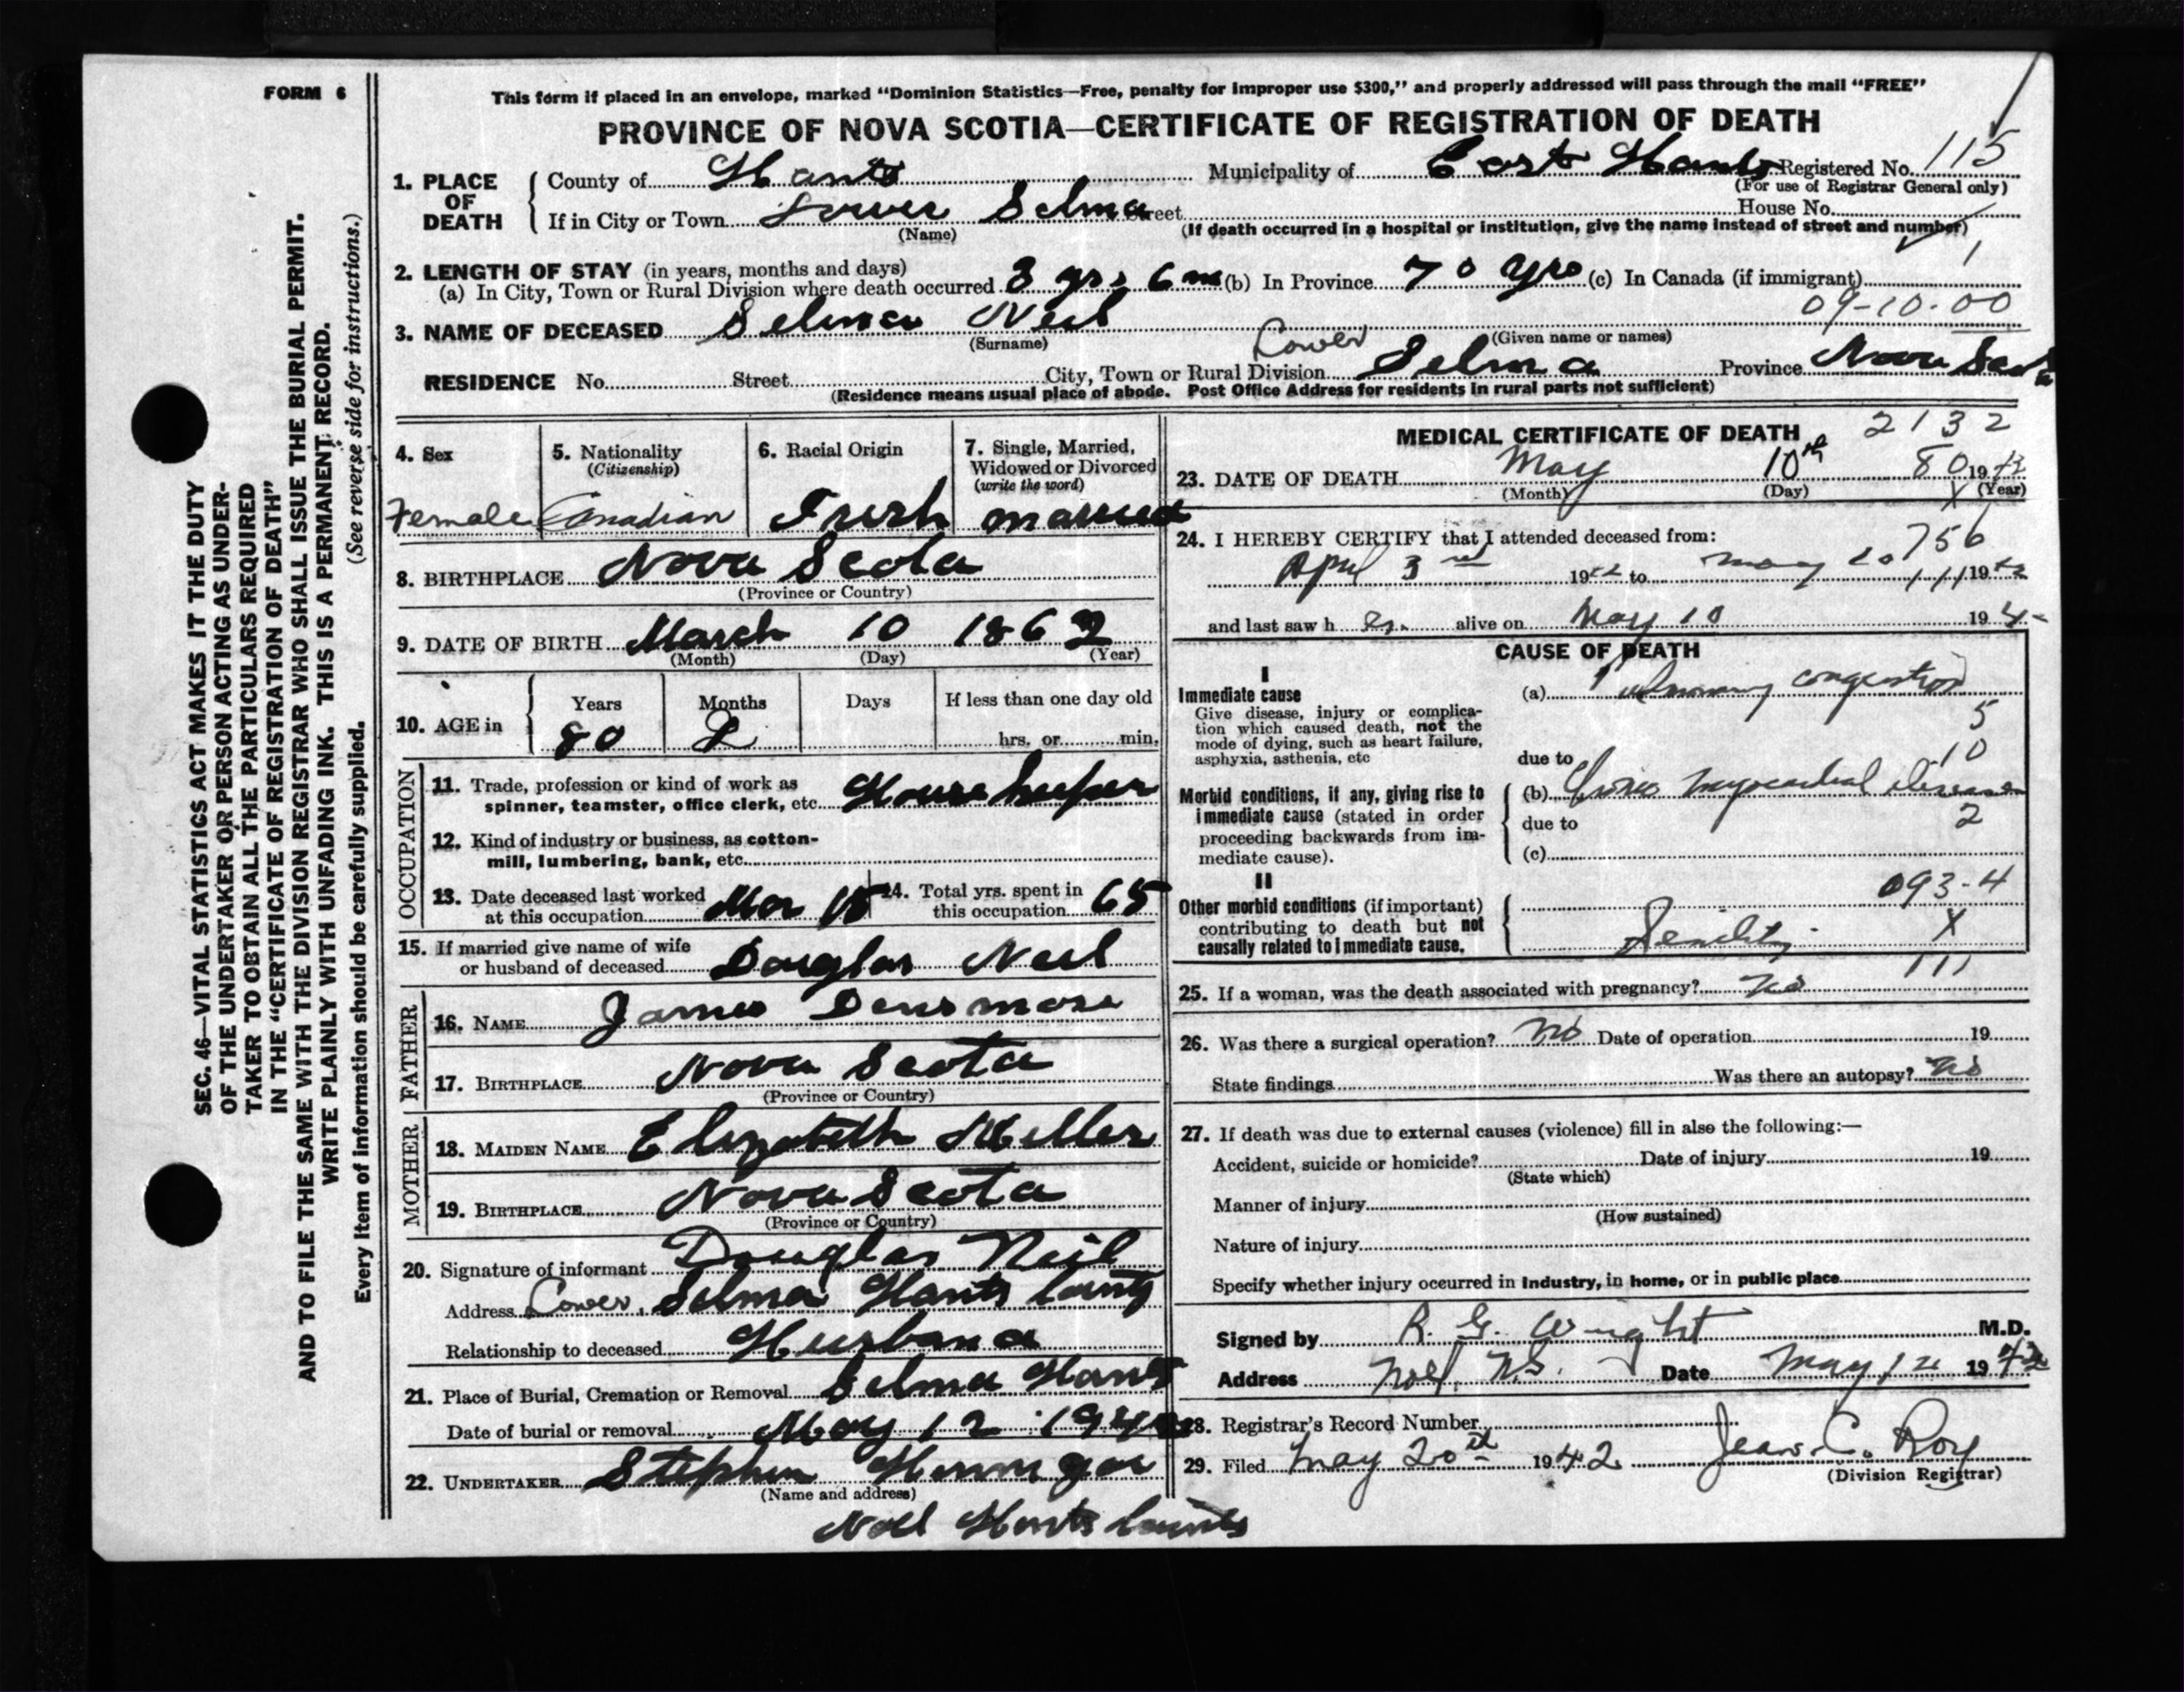 FORM 6
This form if placed in an envelope, marked "Dominion Statistics—Free, penalty for improper use $300," and properly addressed will pass through the mail "FREE"
PROVINCE OF NOVA SCOTIA—CERTIFICATE OF REGISTRATION OF DEATH
SEC. 46—VITAL STATISTICS ACT MAKES IT THE DUTY
OF THE UNDERTAKER OR PERSON ACTING AS UNDER-
TAKER TO OBTAIN ALL THE PARTICULARS REQUIRED
IN THE "CERTIFICATE OF REGISTRATION OF DEATH"
AND TO FILE THE SAME WITH THE DIVISION REGISTRAR WHO SHALL ISSUE THE BURIAL PERMIT.
WRITE PLAINLY WITH UNFADING INK. THIS IS A PERMANENT RECORD.
Every item of information should be carefully supplied. (See reverse side for instructions.)
1. PLACE OF DEATH
County of Hants Municipality of East Hants Registered No. 115
(For use of Registrar General only)
If in City or Town Lower Selma Street House No.
(Name) (If death occurred in a hospital or institution, give the name instead of street and number)
2. LENGTH OF STAY (in years, months and days)
(a) In City, Town or Rural Division where death occurred 3 yrs 6 m (b) In Province 70 yrs (c) In Canada (if immigrant)
09-10-00
3. NAME OF DECEASED Selma Neil
(Surname) (Given name or names)
RESIDENCE No. Street City, Town or Rural Division Lower Selma Province Nova Scotia
(Residence means usual place of abode. Post Office Address for residents in rural parts not sufficient)
4. Sex
Female
5. Nationality
(Citizenship)
Canadian
6. Racial Origin
Irish
7. Single, Married,
Widowed or Divorced
(write the word)
married
8. BIRTHPLACE Nova Scota
(Province or Country)
9. DATE OF BIRTH March 10 1862
(Month) (Day) (Year)
10. AGE in
Years Months Days If less than one day old
80 2 hrs. or min.
OCCUPATION
11. Trade, profession or kind of work as
spinner, teamster, office clerk, etc. House keeper
12. Kind of industry or business, as cotton-
mill, lumbering, bank, etc.
13. Date deceased last worked
at this occupation Mar 15
14. Total yrs. spent in
this occupation 65
15. If married give name of wife
or husband of deceased Douglas Neil
FATHER
16. NAME James Densmore
17. BIRTHPLACE Nova Scota
(Province or Country)
MOTHER
18. MAIDEN NAME Elizabeth Miller
19. BIRTHPLACE Nova Scota
(Province or Country)
20. Signature of informant Douglas Neil
Address Lower Selma Hants County
Relationship to deceased Husband
21. Place of Burial, Cremation or Removal Selma Hants
Date of burial or removal May 12 1942
22. UNDERTAKER Stephen
(Name and address)
Noel Hants County
MEDICAL CERTIFICATE OF DEATH
2132
23. DATE OF DEATH May 10th 80 1942
(Month) (Day) (Year)
X
24. I HEREBY CERTIFY that I attended deceased from:
756
April 3rd 1942 to May 10 1942
and last saw h er alive on May 10 194
CAUSE OF DEATH
I
Immediate cause
Give disease, injury or complica-
tion which caused death, not the
mode of dying, such as heart failure,
asphyxia, asthenia, etc
(a) Pulmonary congestion
5
due to
10
Morbid conditions, if any, giving rise to
immediate cause (stated in order
proceeding backwards from im-
mediate cause).
(b) Chronic myocardial disease
due to
2
(c)
II
Other morbid conditions (if important)
contributing to death but not
causally related to immediate cause.
093-4
Senility
X
111
25. If a woman, was the death associated with pregnancy? No
26. Was there a surgical operation? No Date of operation 19
State findings Was there an autopsy? No
27. If death was due to external causes (violence) fill in also the following:—
Accident, suicide or homicide? Date of injury 19
(State which)
Manner of injury
(How sustained)
Nature of injury
Specify whether injury occurred in industry, in home, or in public place
Signed by R. G. Wright M.D.
Address Noel, N.S. Date May 12 1942
28. Registrar's Record Number
29. Filed May 20th 1942 Jean C. Roy
(Division Registrar)